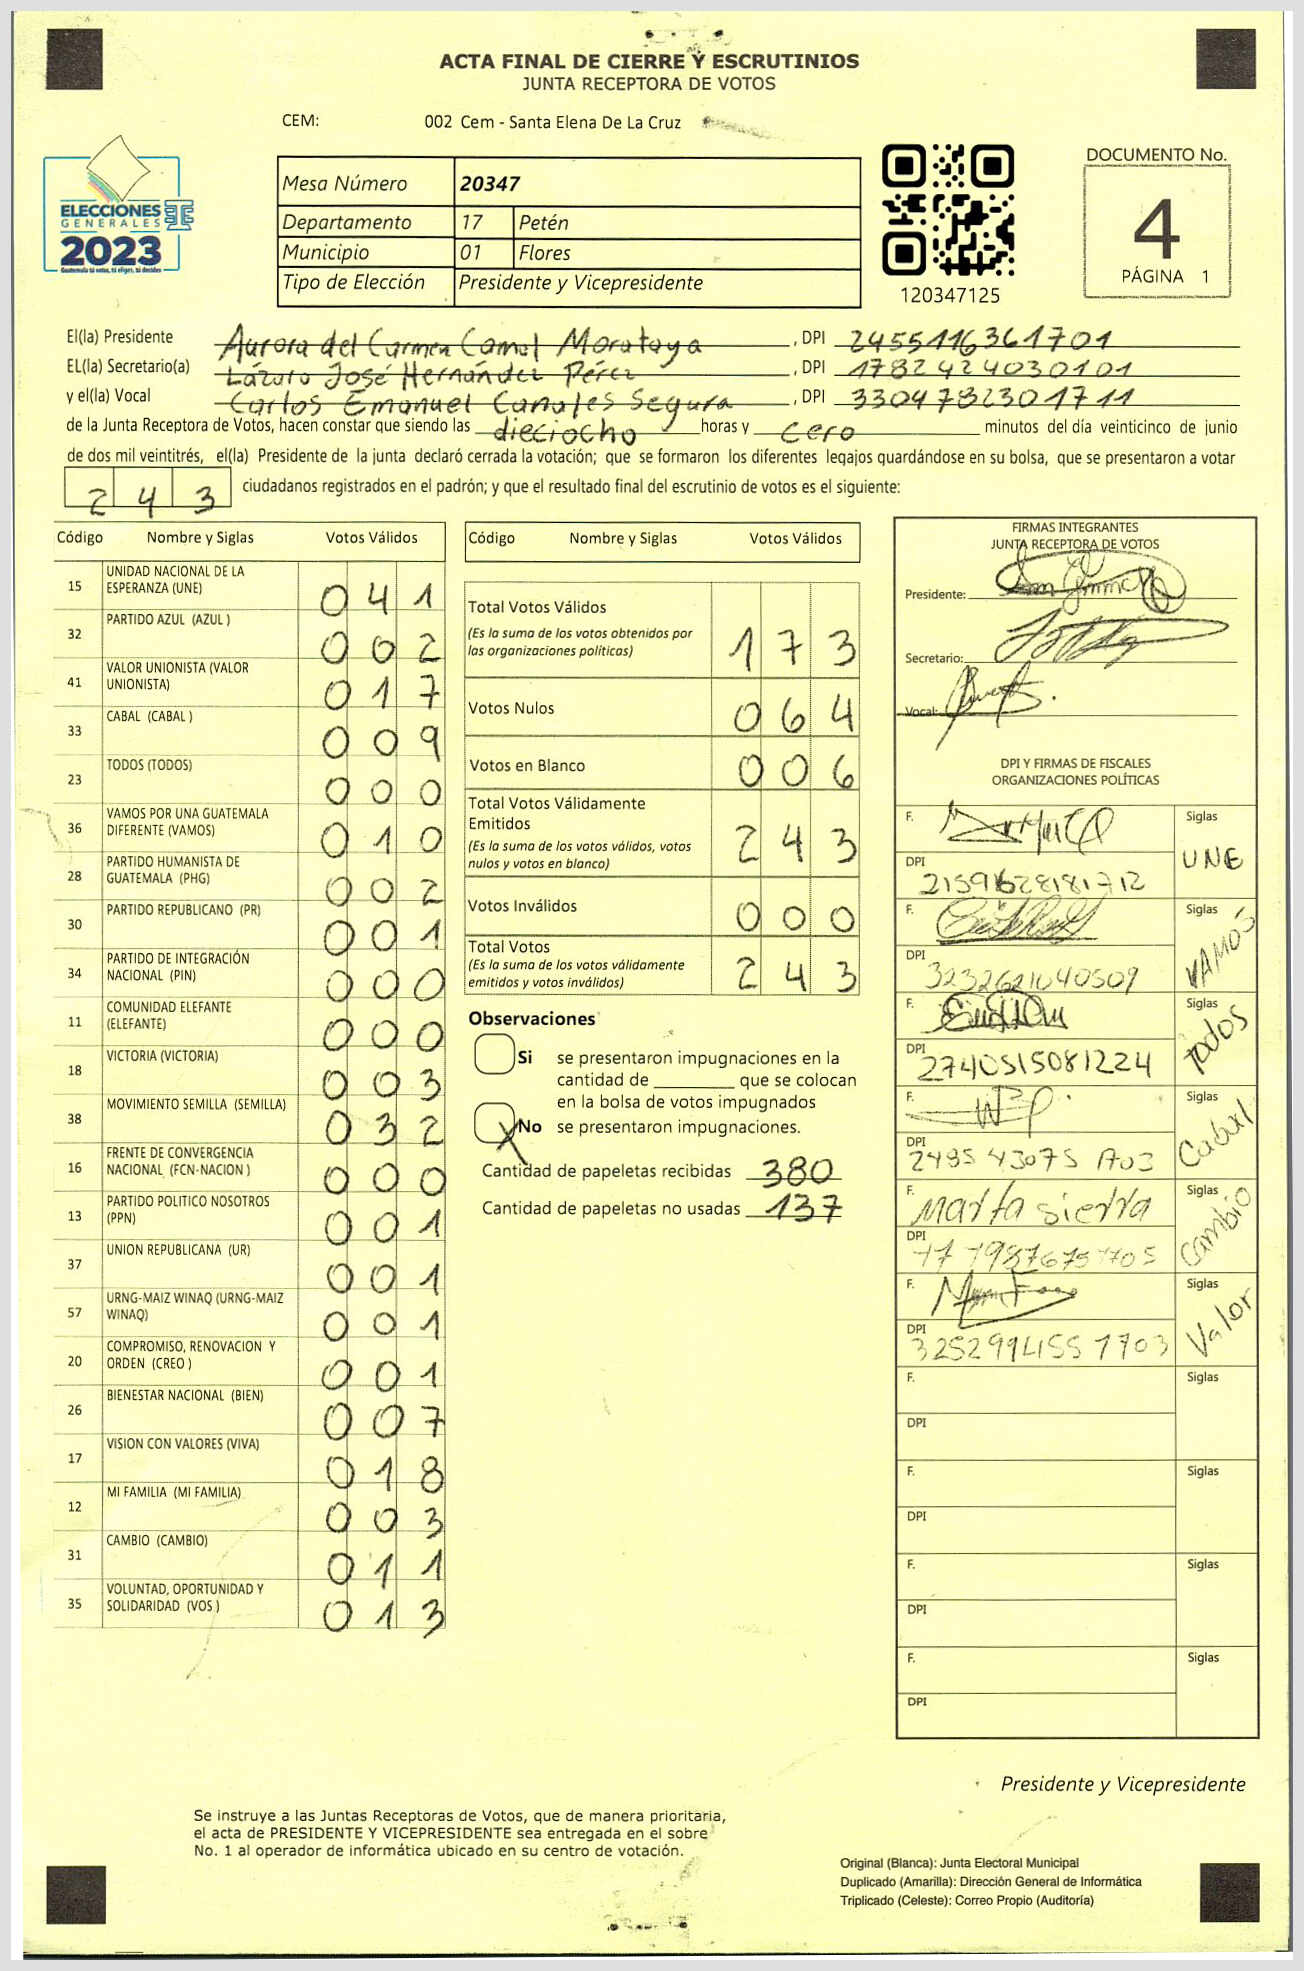 ACTA FINAL DE CIERRE Y ESCRUTINIOS
JUNTA RECEPTORA DE VOTOS
CEM: 002 Cem - Santa Elena De La Cruz
ELECCIONES
GENERALES
2023
Guatemala tú votas, tú eliges, tú decides
Mesa Número 20347
Departamento 17 Petén
Municipio 01 Flores
Tipo de Elección Presidente y Vicepresidente
120347125
DOCUMENTO No.
4
PÁGINA 1
El(la) Presidente Aurora del Carmen Camal Morataya, DPI 2455116361701
EL(la) Secretario(a) Lázaro José Hernández Pérez, DPI 1782424030101
y el(la) Vocal Carlos Emanuel Canales Segura, DPI 3304782301711
de la Junta Receptora de Votos, hacen constar que siendo las dieciocho horas y cero minutos del día veinticinco de junio
de dos mil veintitrés, el(la) Presidente de la junta declaró cerrada la votación; que se formaron los diferentes legajos guardándose en su bolsa, que se presentaron a votar
243 ciudadanos registrados en el padrón; y que el resultado final del escrutinio de votos es el siguiente:
Código Nombre y Siglas Votos Válidos
15 UNIDAD NACIONAL DE LA ESPERANZA (UNE) 041
32 PARTIDO AZUL (AZUL ) 002
41 VALOR UNIONISTA (VALOR UNIONISTA) 017
33 CABAL (CABAL ) 009
23 TODOS (TODOS) 000
36 VAMOS POR UNA GUATEMALA DIFERENTE (VAMOS) 010
28 PARTIDO HUMANISTA DE GUATEMALA (PHG) 002
30 PARTIDO REPUBLICANO (PR) 001
34 PARTIDO DE INTEGRACIÓN NACIONAL (PIN) 000
11 COMUNIDAD ELEFANTE (ELEFANTE) 000
18 VICTORIA (VICTORIA) 003
38 MOVIMIENTO SEMILLA (SEMILLA) 032
16 FRENTE DE CONVERGENCIA NACIONAL (FCN-NACION ) 000
13 PARTIDO POLITICO NOSOTROS (PPN) 001
37 UNION REPUBLICANA (UR) 001
57 URNG-MAIZ WINAQ (URNG-MAIZ WINAQ) 001
20 COMPROMISO, RENOVACION Y ORDEN (CREO ) 001
26 BIENESTAR NACIONAL (BIEN) 007
17 VISION CON VALORES (VIVA) 018
12 MI FAMILIA (MI FAMILIA) 003
31 CAMBIO (CAMBIO) 011
35 VOLUNTAD, OPORTUNIDAD Y SOLIDARIDAD (VOS ) 013
Código Nombre y Siglas Votos Válidos
Total Votos Válidos 173
(Es la suma de los votos obtenidos por
las organizaciones políticas)
Votos Nulos 064
Votos en Blanco 006
Total Votos Válidamente
Emitidos 243
(Es la suma de los votos válidos, votos
nulos y votos en blanco)
Votos Inválidos 000
Total Votos 243
(Es la suma de los votos válidamente
emitidos y votos inválidos)
Observaciones
Si se presentaron impugnaciones en la
cantidad de ________ que se colocan
en la bolsa de votos impugnados
X No se presentaron impugnaciones.
Cantidad de papeletas recibidas 380
Cantidad de papeletas no usadas 137
FIRMAS INTEGRANTES
JUNTA RECEPTORA DE VOTOS
Presidente:
Secretario:
Vocal:
DPI Y FIRMAS DE FISCALES
ORGANIZACIONES POLÍTICAS
F. Siglas
DPI UNE
F. Siglas
DPI 3232621040509 VAMOS
F. Siglas
DPI 2740515081224 TODOS
F. Siglas
DPI 2495 43075 1703 Cabal
F. Marta sierra Siglas
DPI Cambio
F. Siglas
DPI Valor
F. Siglas
DPI
F. Siglas
DPI
F. Siglas
DPI
F. Siglas
DPI
Presidente y Vicepresidente
Se instruye a las Juntas Receptoras de Votos, que de manera prioritaria,
el acta de PRESIDENTE Y VICEPRESIDENTE sea entregada en el sobre
No. 1 al operador de informática ubicado en su centro de votación.
Original (Blanca): Junta Electoral Municipal
Duplicado (Amarilla): Dirección General de Informática
Triplicado (Celeste): Correo Propio (Auditoría)